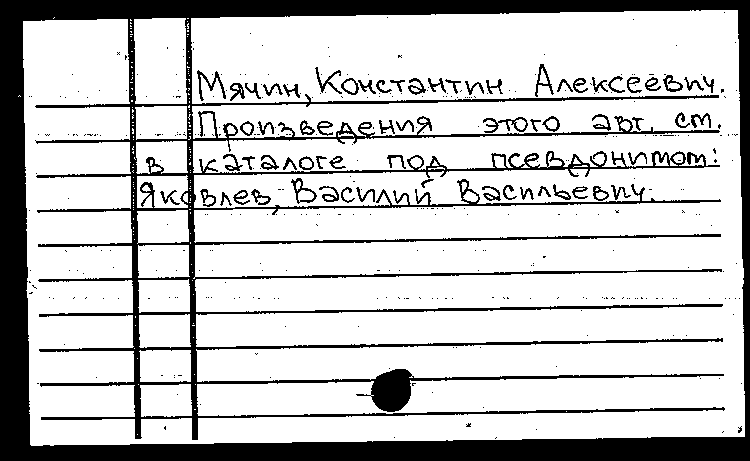 Мячин, Константин Алексеевич.
Произведения этого авт. см.
в каталоге под псевдонимом:
Яковлев, Василий Васильевич.